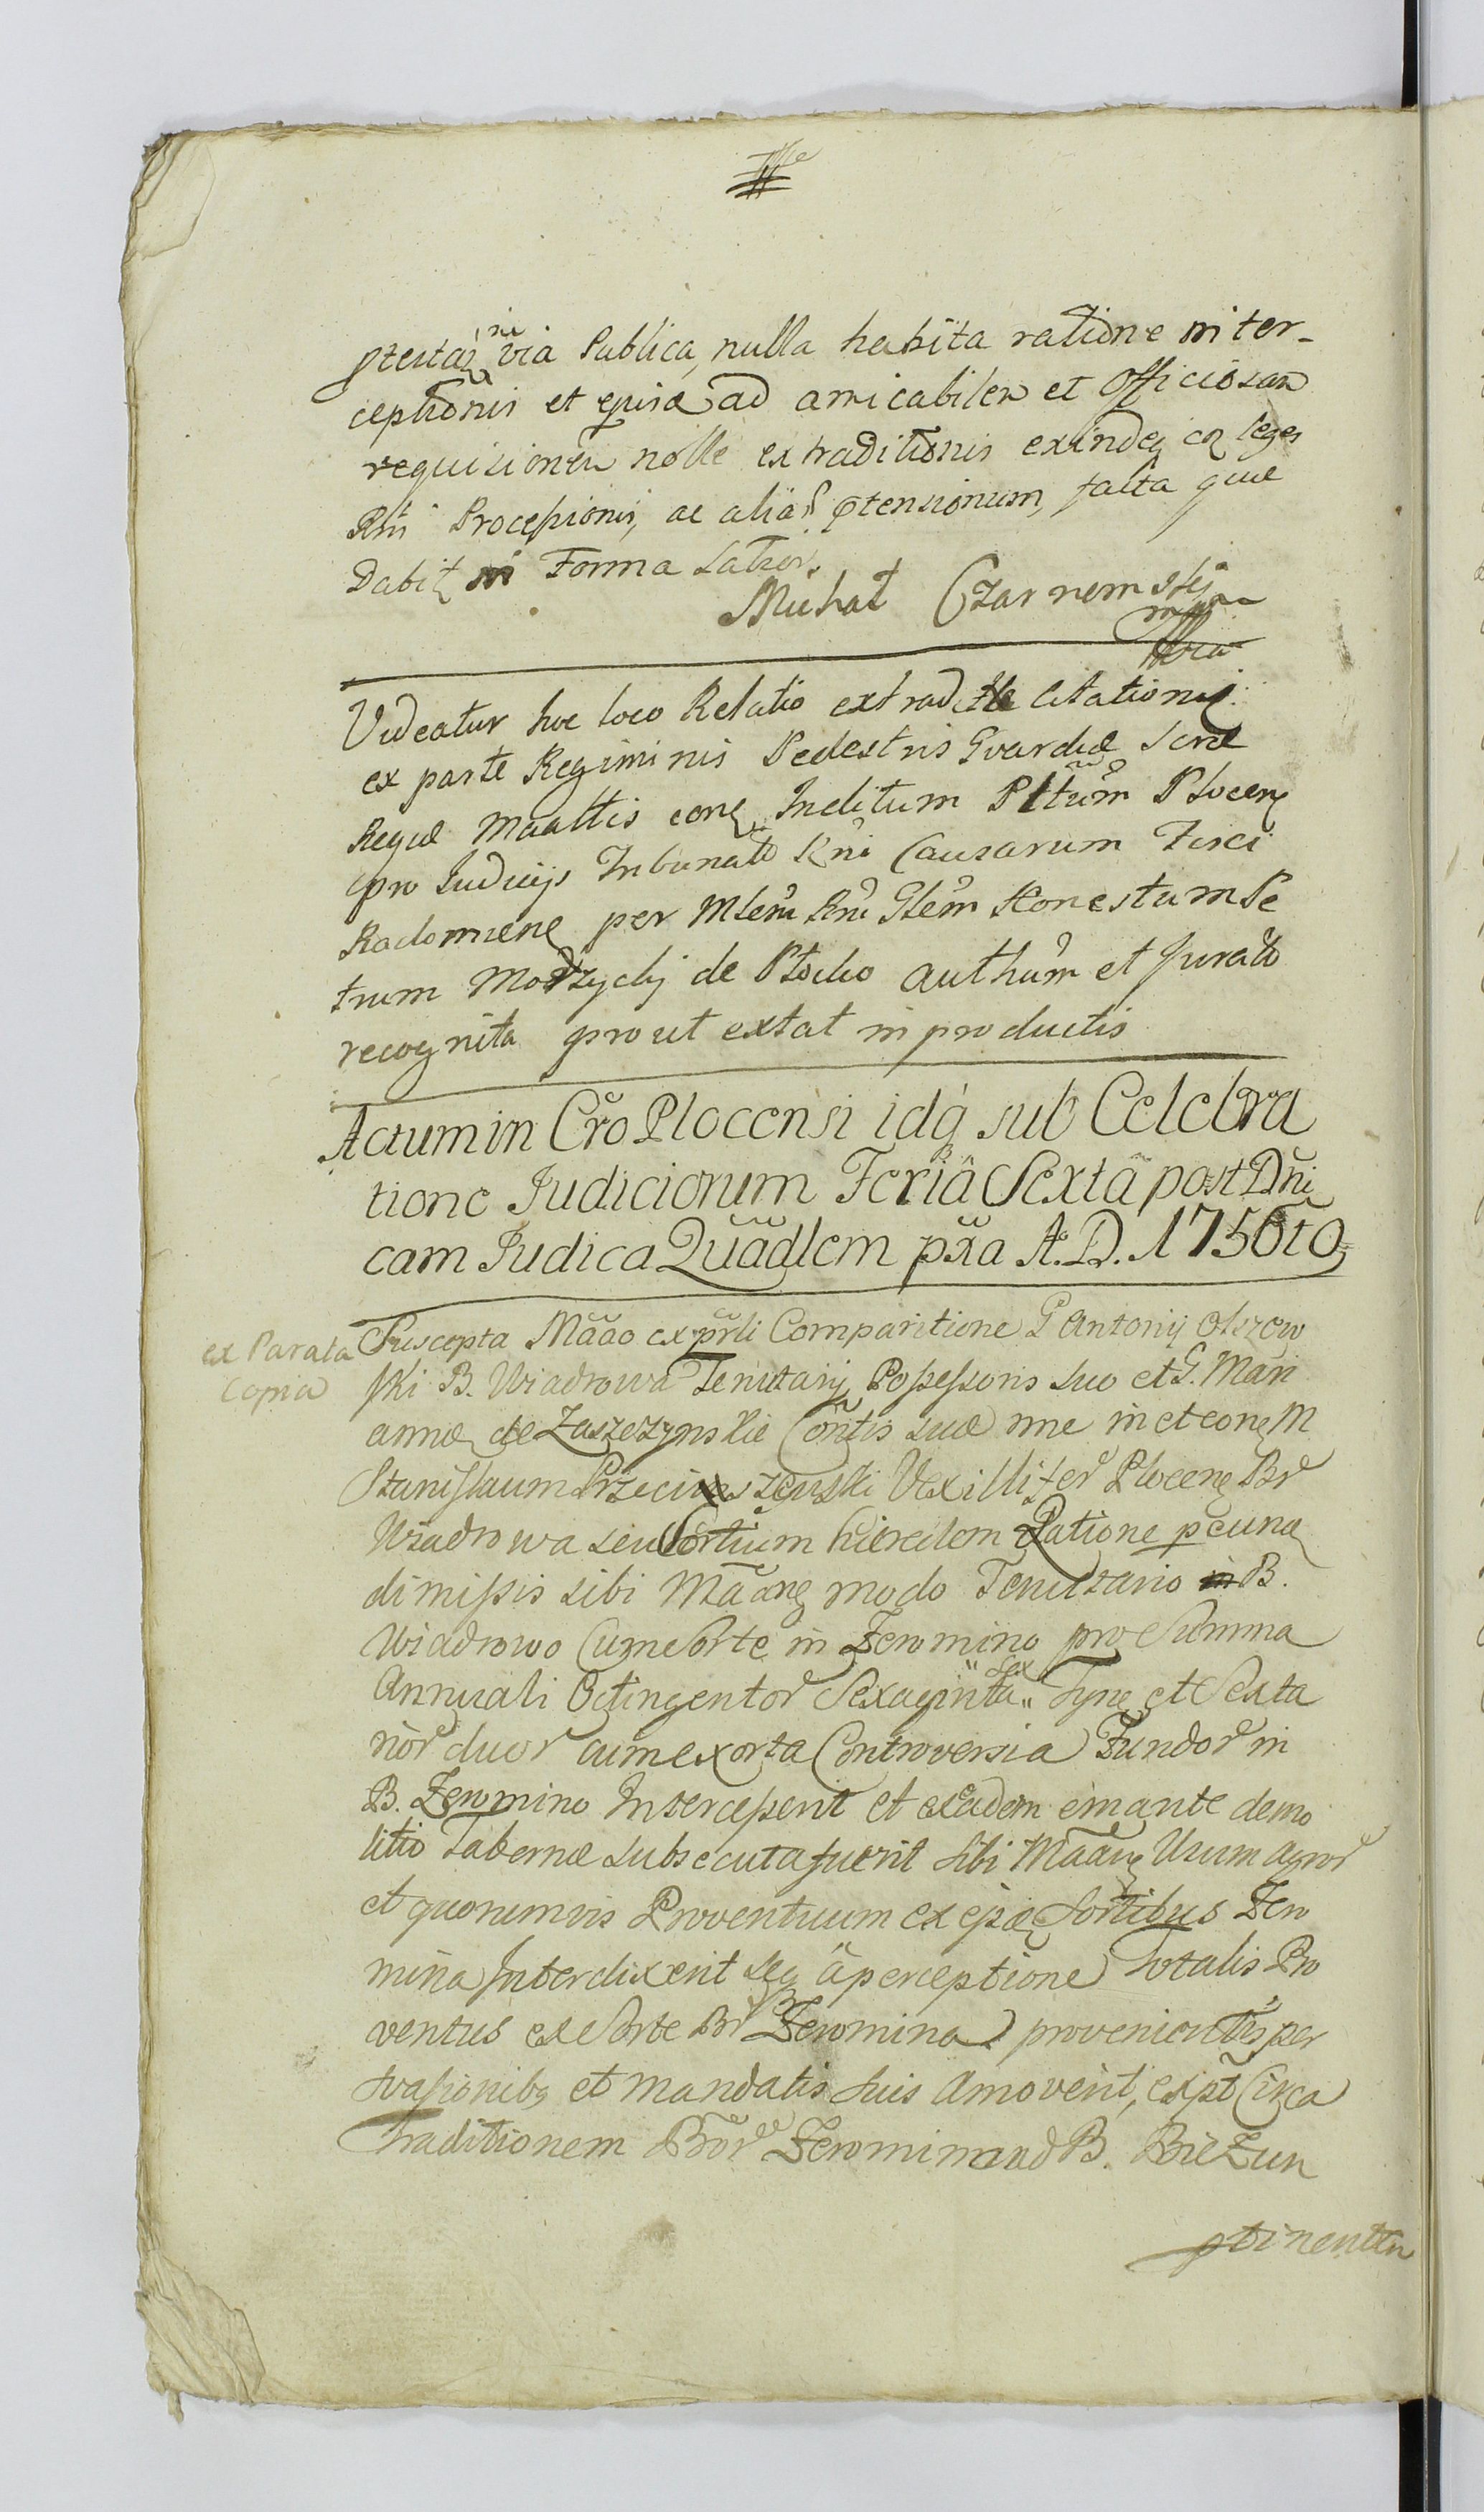 via Publica, nulla habita ratione inter-
ceptionis et ad amicabilem et Officiosam
requisitionem nolle extraditionis exinde leges
Rni Processionis, ac aliar ptensionum, facta que
Dabit in Forma
Michał Czarnomskij
mpr
Videatur hoc loco Relatio extraditae Citationis
ex parte Regiminis Pedestris Gvardiae Srae
Regiae Maattis con Inclitum Pltum Plocen
pro Judicijs Tribunal Rni Causarum Fisci
Radomien per Mlem Rni Glem Honestum Pe
trum Modzyckij de Płocko authum et Jurato
recognita prout extat in productis
Actum in Cro Plocensi idq sub Celebra
tione Judiciorum Feria Sexta post Dni
cam Judica Quadlem pxa A.D. 1750to
ex Parata
Copia
Suscepta Maao ex prli Comparitione G Antonij Olszow
ski B. Wiadrowa Tenutarij Possessoris suo et G. Mari
annae de Zaszczynskie Contis suae nne in et con M
Stanislaum Przeciszewski Vexillifer Plocen Br
Wiadrowa seu Sortium haeredem Ratione pcunae
dimissis sibi Maaon modo Tenutario B.
Wiadrowo Cum Sorte in Zeromino pro Summa
Annuali Octingentor Sexaginta sex Tyn et Sexta
rior duor cum exorta Controversia Fundor in
B. Zeromino Intercesserit et eadem emante demo
litio Tabernae subsecuta fuerit sibi Maaon Usum Agror
et quorumvis Proventuum ex Sortibus Zero
mina Interdixerit seq a perceptione totalis Pro
ventus ex Sorte Br Zeromina provenientis per
svasionibq et mandatis suis Amoverit, Circa
Traditionem Bor Zeromina ad B. Bieżun
ptinentem